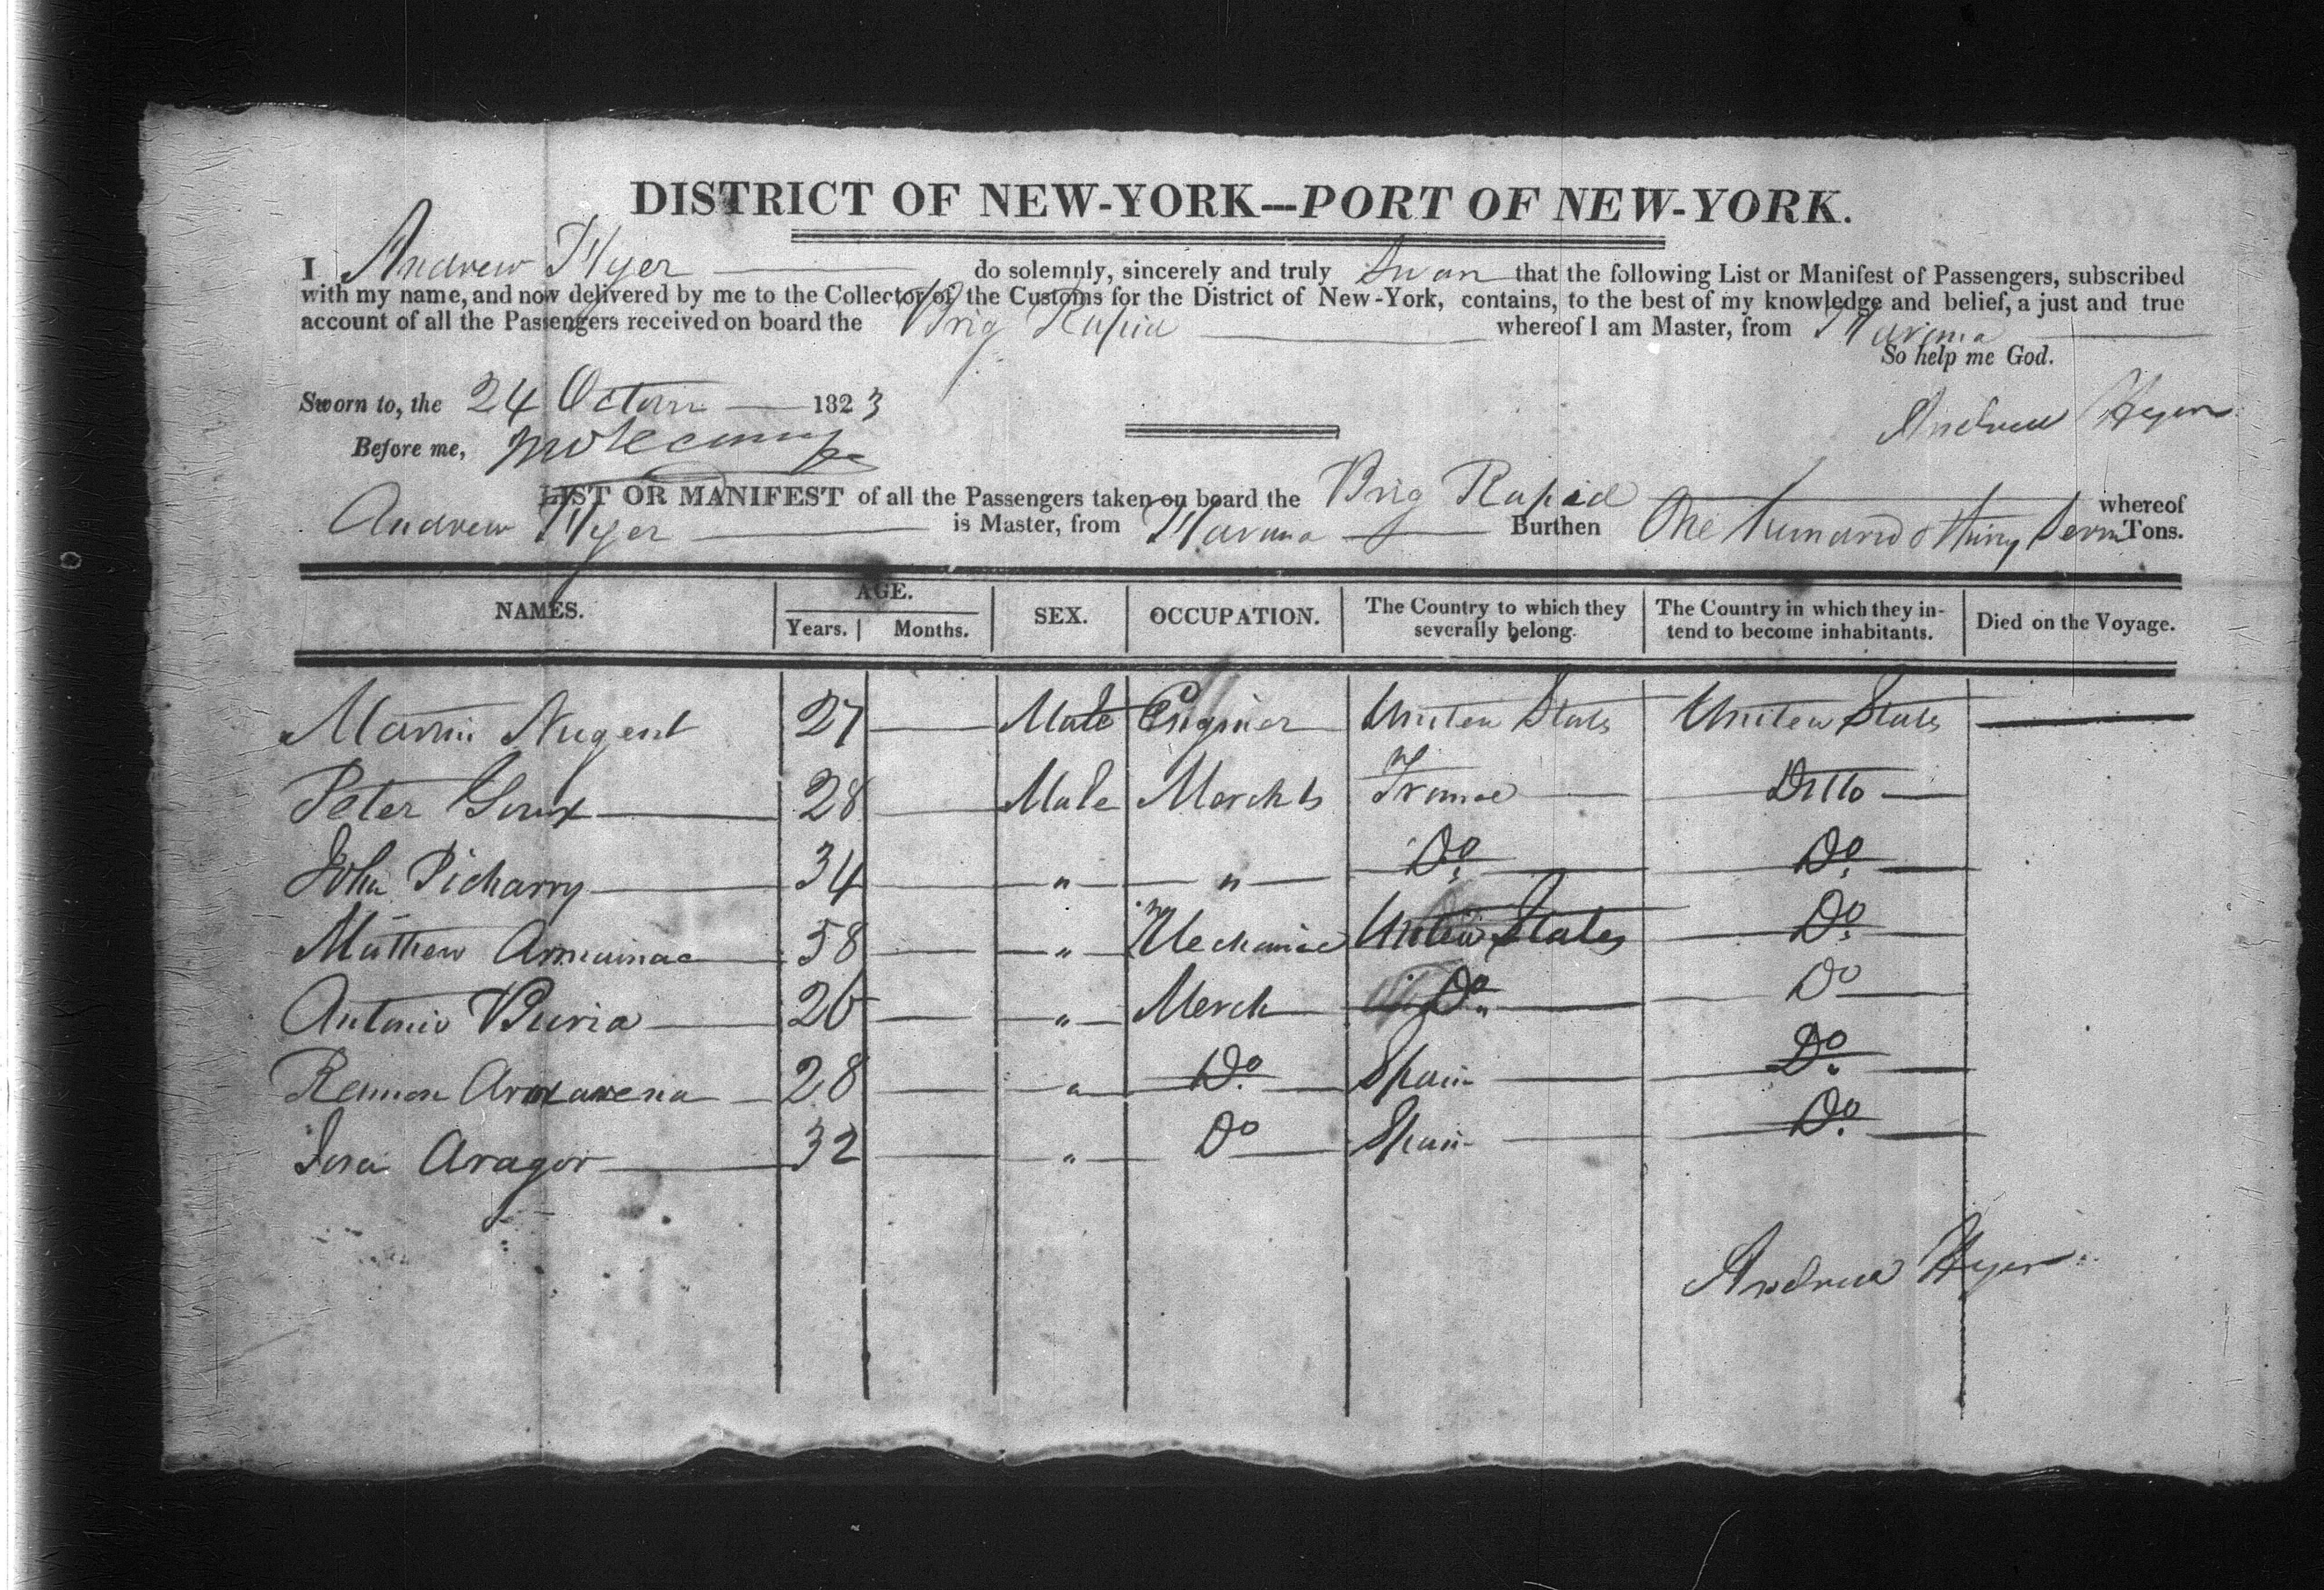 DISTRICT OF NEW-YORK—PORT OF NEW-YORK.
I Andrew Hyer do solemnly, sincerely and truly Swear that the following List or Manifest of Passengers, subscribed
with my name, and now delivered by me to the Collector of the Customs for the District of New-York, contains, to the best of my knowledge and belief, a just and true
account of all the Passengers received on board the Brig Rapid whereof I am Master, from Havana
So help me God.
Sworn to, the 24 October 1823
Andrew Hyer
Before me,
LIST OR MANIFEST of all the Passengers taken on board the Brig Rapid whereof
Andrew Hyer is Master, from Havana Burthen One hundred & thirty seven Tons.
NAMES. AGE. Years. Months. SEX. OCCUPATION. The Country to which they severally belong. The Country in which they intend to become inhabitants. Died on the Voyage.
Martin Nugent 27 Male Engineer United States United States
Peter 28 Male Merchts France Ditto
John Picharry 34 " " Do. Do.
Mathew 58 " Mechanic United States Do.
Antonio 26 " Merch Do. Do
28 " Do. Spain Do.
José Aragor 32 " Do Spain Do.
Andrew Hyer